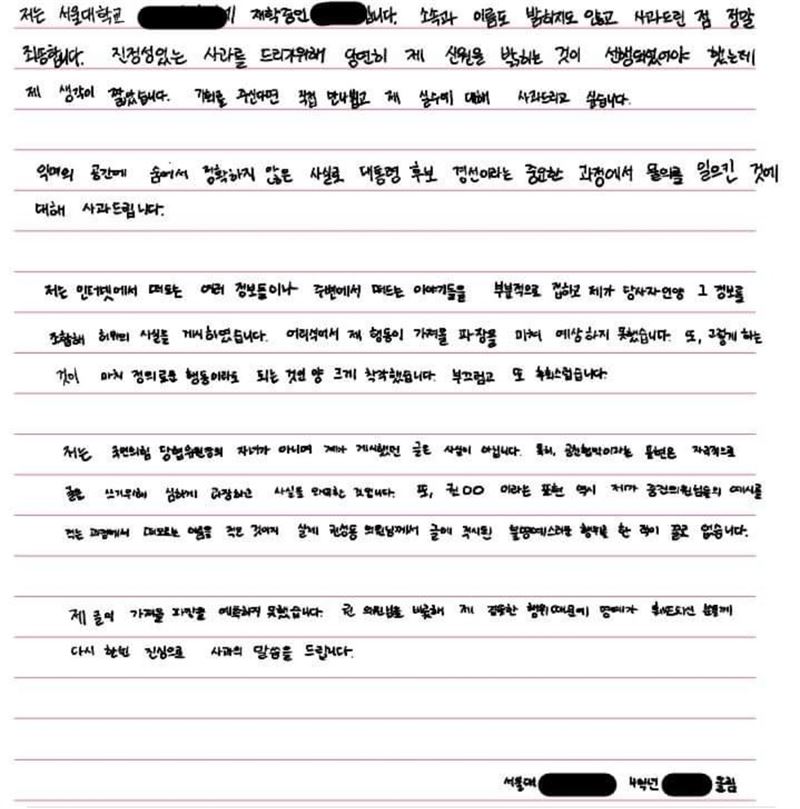 저는 서울대학교 재학중인 입니다. 소속과 이름도 밝히지도 않고 사과드린 점 정말
죄송합니다. 진정성있는 사과를 드리기위해 당연히 제 신원을 밝히는 것이 선행되었어야 했는데
제 생각이 짧았습니다. 기회를 주신다면 직접 만나뵙고 제 실수에 대해 사과드리고 싶습니다.
익명의 공간에 숨어서 정확하지 않은 사실로 대통령 후보 경선이라는 중요한 과정에서 물의를 일으킨 것에
대해 사과드립니다.
저는 인터넷에서 떠도는 여러 정보들이나 주변에서 떠드는 이야기들을 부분적으로 접하고 제가 당사자인양 그 정보를
조합해 허위의 사실을 게시하였습니다. 어리석어서 제 행동이 가져올 파장을 미처 예상하지 못했습니다. 또, 그렇게 하는
것이 마치 정의로운 행동이라도 되는 것인 양 크게 착각했습니다. 부끄럽고 또 후회스럽습니다.
저는 국민의힘 당협위원장의 자녀가 아니며 제가 게시했던 글은 사실이 아닙니다. 특히, 공천협박이라는 표현은 자극적으로
글을 쓰기위해 심하게 과장하고 사실을 왜곡한 것입니다. 또, 권OO 이라는 표현 역시 제가 중진의원님들의 예시를
적는 과정에서 떠오르는 이름을 적은 것이지 실제 권성동 의원님께서 글에 적시된 불명예스러운 행위를 한 적이 결코 없습니다.
제 글의 가져올 파장을 예측하지 못했습니다. 권 의원님을 비롯해 제 경솔한 행위때문에 명예가 훼손되신 분들께
다시 한번 진심으로 사과의 말씀을 드립니다.
서울대 4학년 올림